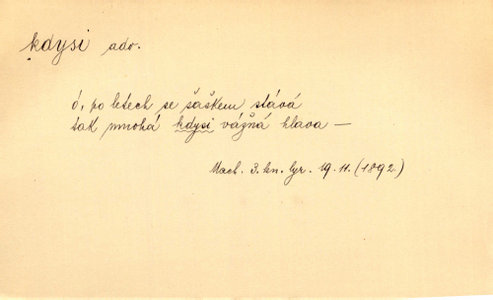 kdysi adv.
ó, po letech se šaškem stává
tak mnohá kdysi vážná hlava —
Mach. 3. kn. lyr. 19. 11. (1892)